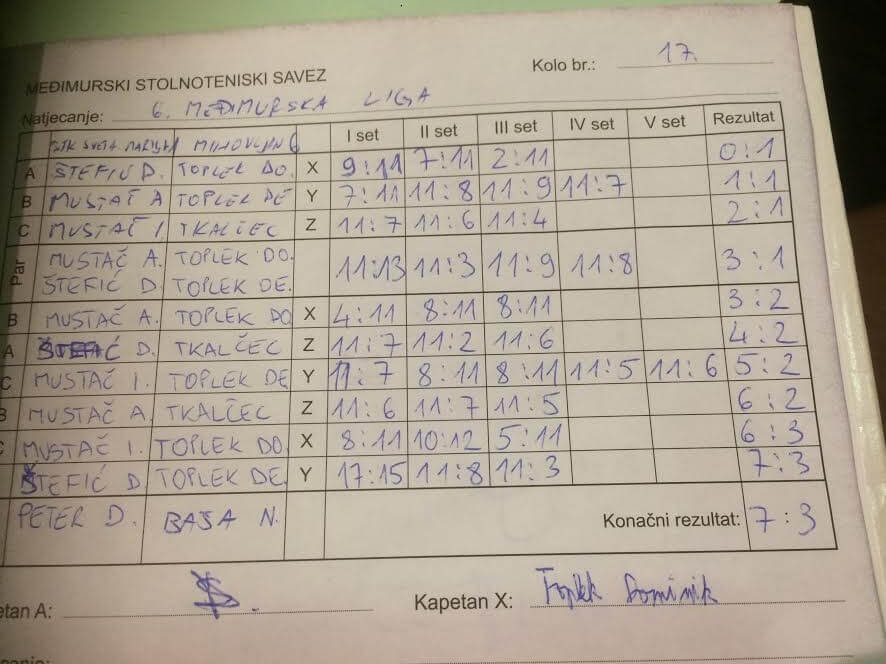 MEĐIMURSKI STOLNOTENISKI SAVEZ
Kolo br.: 17.
Natjecanje: 6. MEĐIMURSKA LIGA
STK SVETA MARIJA MIHOVLJAN I set II set III set IV set V set Rezultat
A ŠTEFIĆ D. TOPLEK DO. X 9:11 7:11 2:11 0:1
B MUSTAČ A TOPLEK DE Y 7:11 11:8 11:9 11:7 1:1
C MUSTAČ I. TKALČEC Z 11:7 11:6 11:4 2:1
Par MUSTAČ A. TOPLEK DO. 11:13 11:3 11:9 11:8 3:1
ŠTEFIĆ D. TOPLEK DE.
B MUSTAČ A. TOPLEK DO X 4:11 8:11 8:11 3:2
A ŠTEFIĆ D. TKALČEC Z 11:7 11:2 11:6 4:2
C MUSTAČ I. TOPLEK DE Y 11:7 8:11 8:11 11:5 11:6 5:2
B MUSTAČ A. TKALČEC Z 11:6 11:7 11:5 6:2
C MUSTAČ I. TOPLEK DO. X 8:11 10:12 5:11 6:3
ŠTEFIĆ D. TOPLEK DE. Y 17:15 11:8 11:3 7:3
PETER D. BAŠA N. Konačni rezultat: 7:3
etan A: Kapetan X: Toplek Dominik